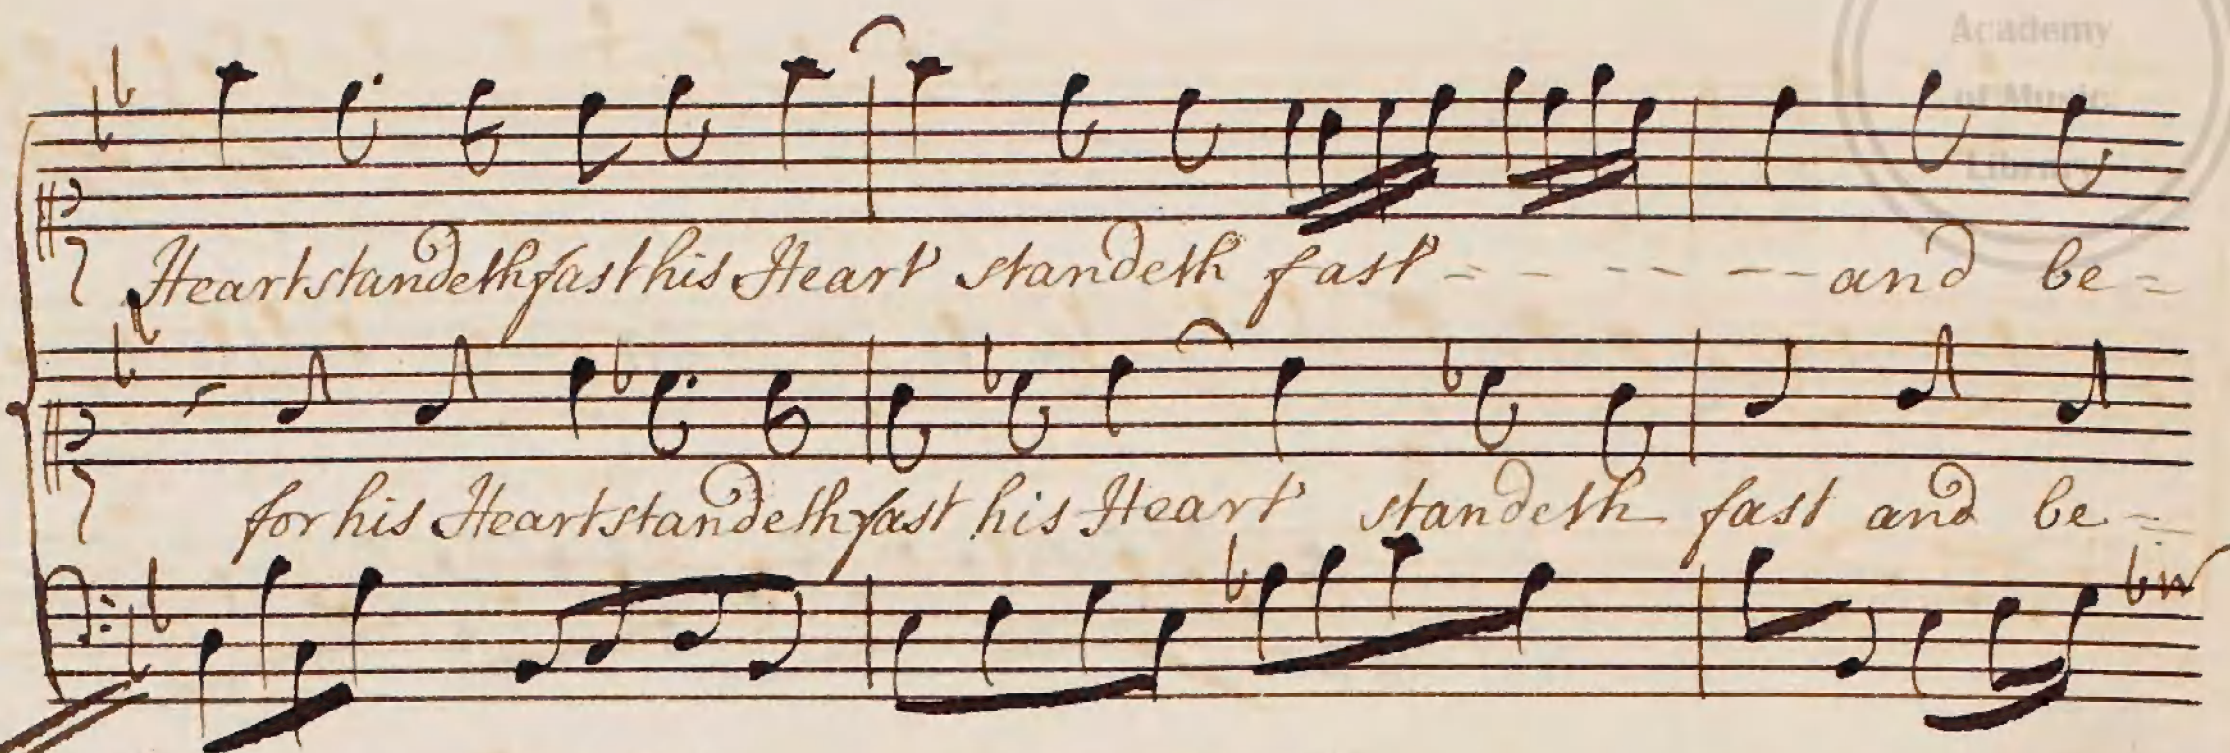 Academy
of Music
Library
Heart standeth fast his Heart standeth fast - - - - - - and be=
for his Heart standeth fast his Heart standeth fast and be-=